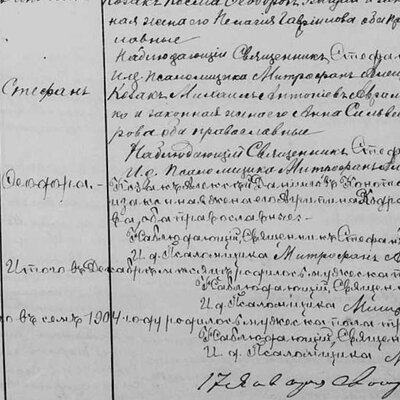 Козакъ Косма Ѳеодоровъ
ная жена его Пелагія Гавриилова оба пра
вославные
Наблюдающій Священникъ Стефа
И. д. Псаломщика Митрофанъ
Стефанъ Козакъ Михаилъ Антоніевъ
ко и законная жена его Анна Сильве
рова оба православные
Наблюдающій Священникъ Стеф
И. д. Псаломщика Митрофанъ
Козакъ Алексій Даніиловъ
и законная жена его
ва, оба православные.
Наблюдающій Священникъ Стефа
И. д. Псаломщика Митрофанъ
Итого въ Декабрѣ мѣсяцѣ родилось мужеска
Наблюдающій, Священ
И. д. Псаломщика
о въ семъ 1904 году родилось мужеска пола
Наблюдающій, Священ
И. д. Псаломщика
17 Января